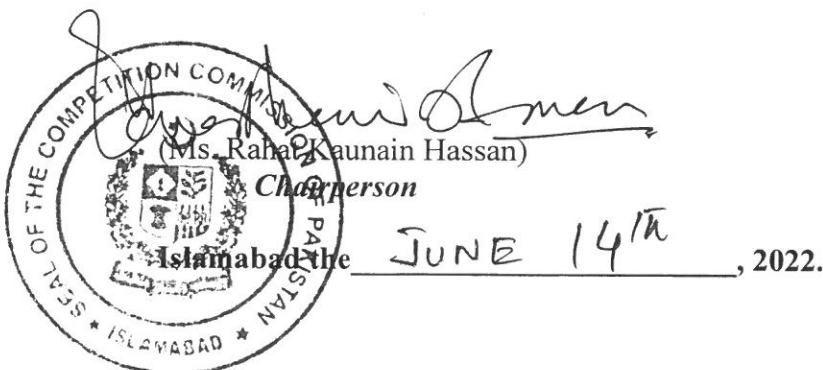 SEAL OF THE COMPETITION COMMISSION OF PAKISTAN
★ ISLAMABAD ★
(Ms. Rahat Kaunain Hassan)
Chairperson
Islamabad the JUNE 14th, 2022.